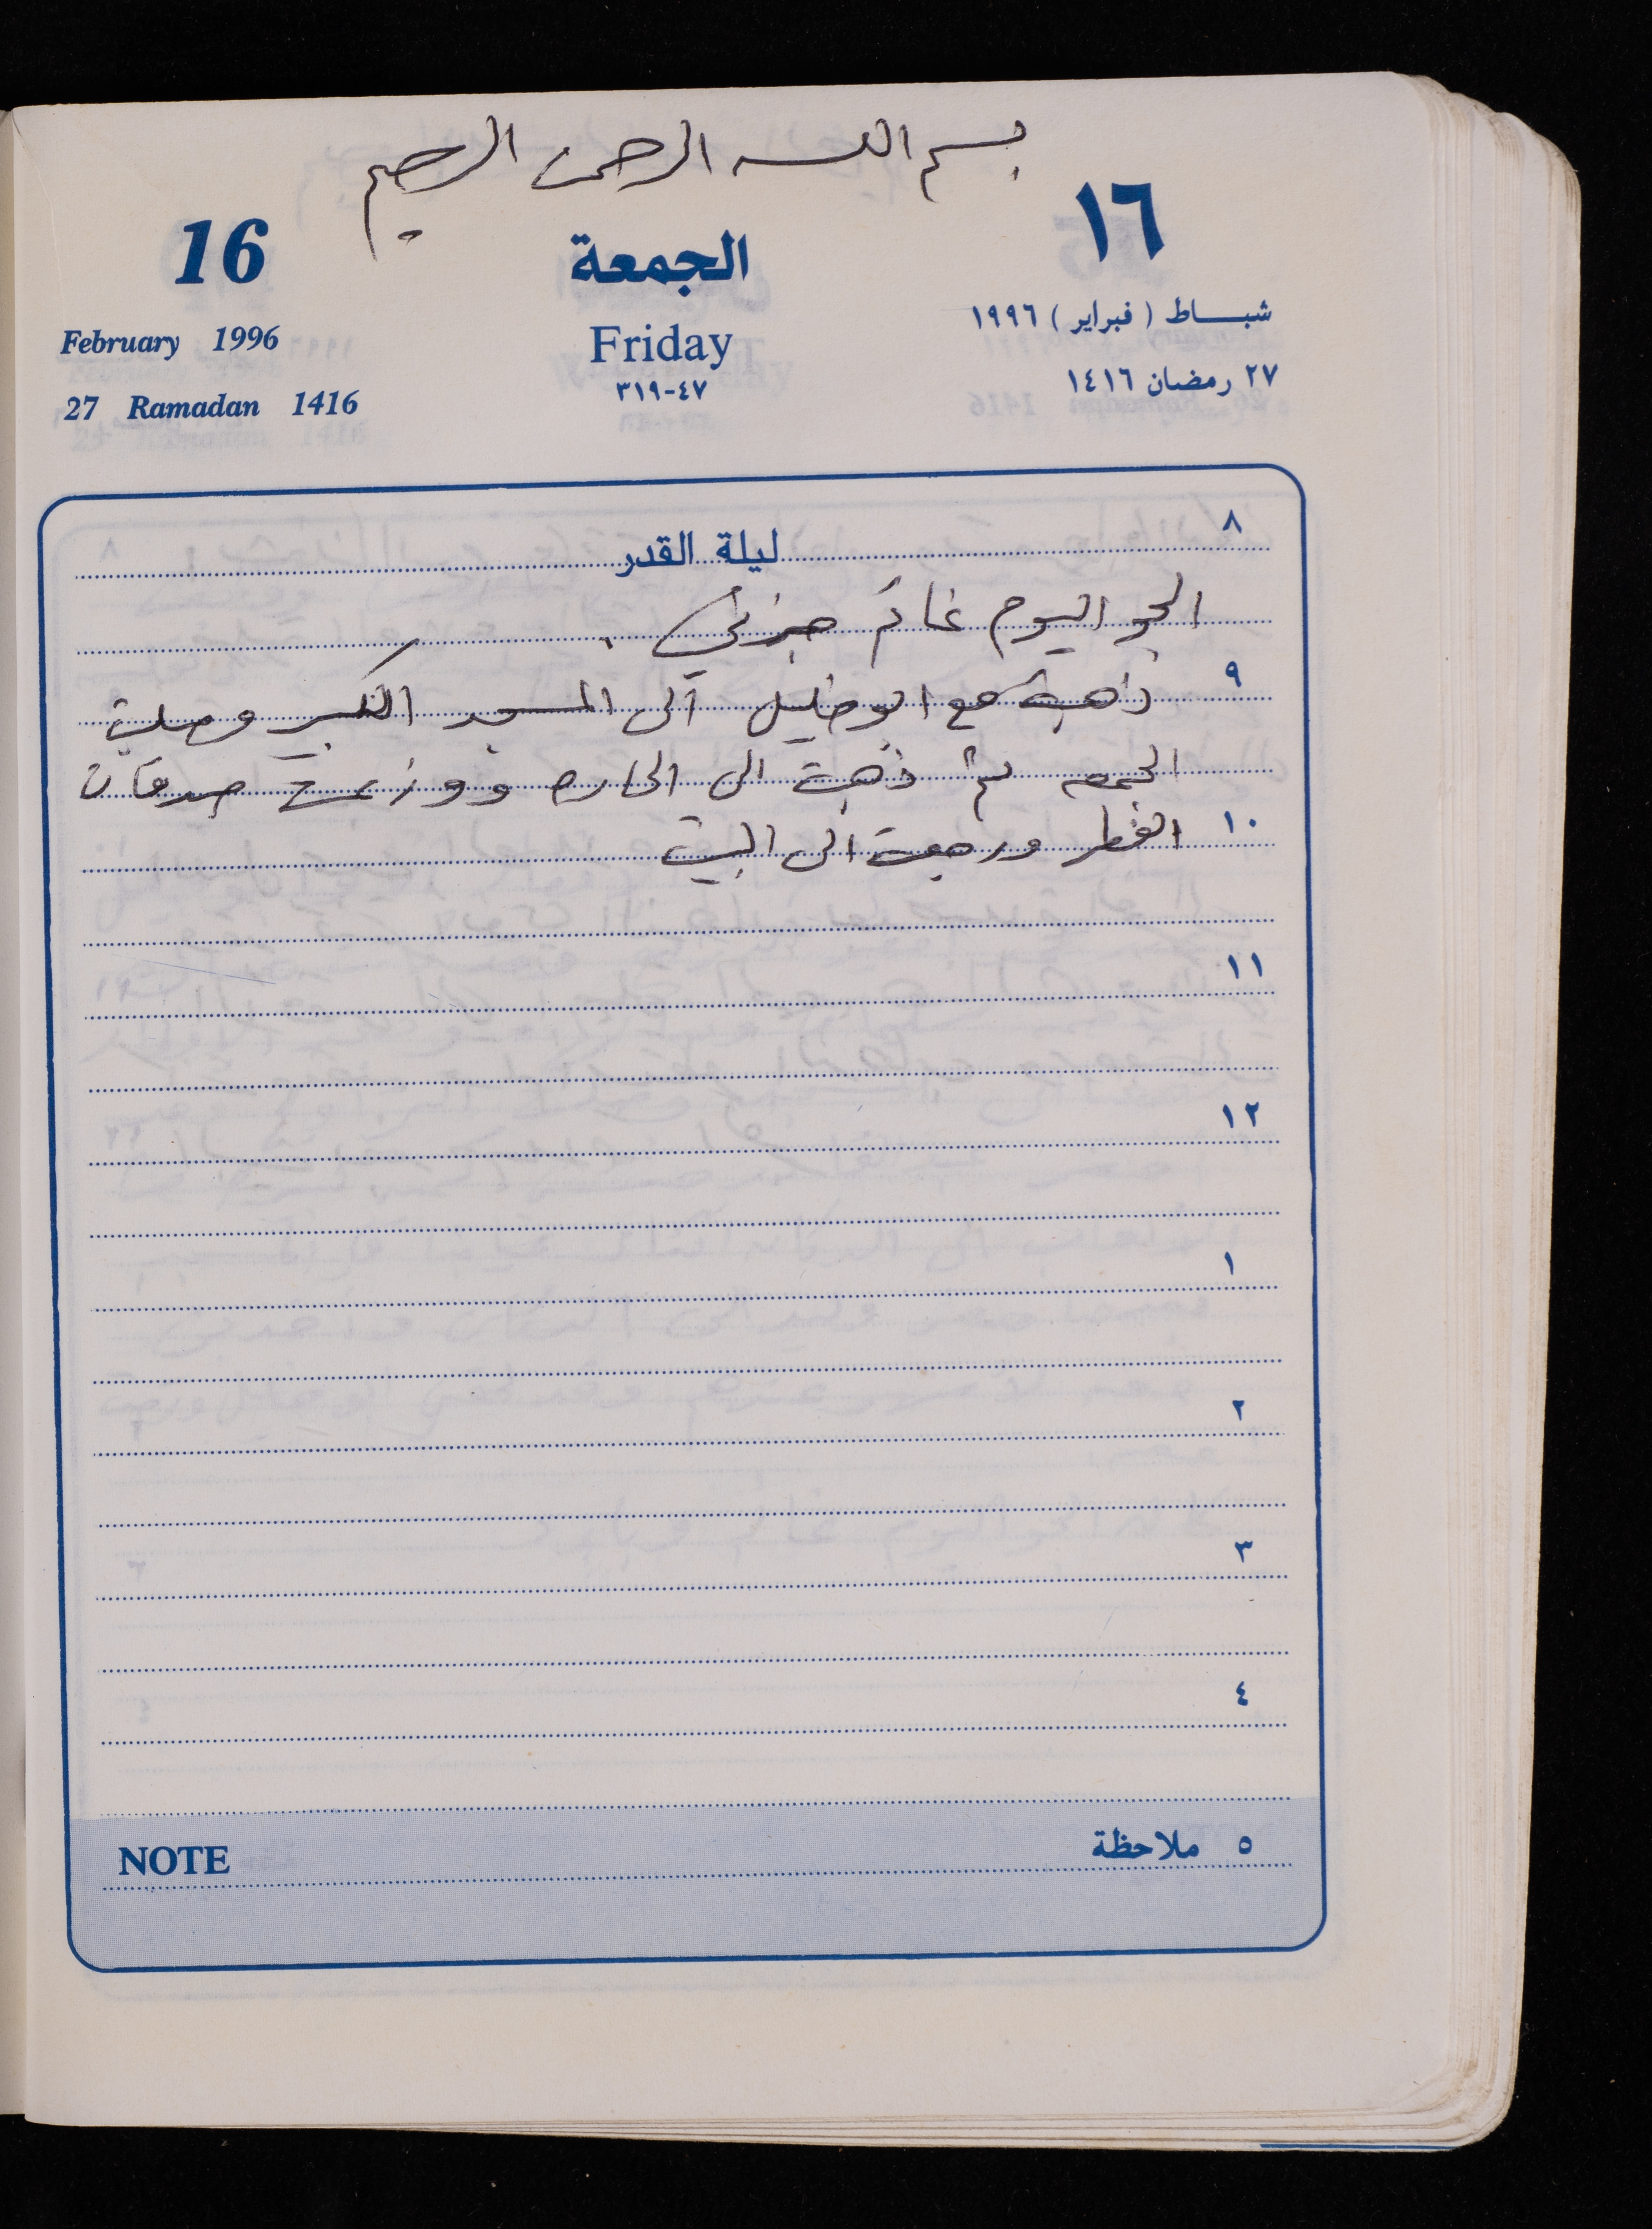 بسم الله الرحمن الرحيم
16 الجمعة ١٦
February 1996 Friday شباط ( فبراير ) ١٩٩٦
27 Ramadan 1416 ٣١٩-٤٧ ٢٧ رمضان ١٤١٦
٨ ليلة القدر
الجو اليوم غائم جزئي .
٩ ذهبت مع ابو خليل الى المسجد الكبير وصليت
الجمعه ثم ذهبت الى الحاره ووزعت صدقات
١٠ الفطر ورجعت الى البيت
١١
١٢
١
٢
٣
٤
NOTE ٥ ملاحظة